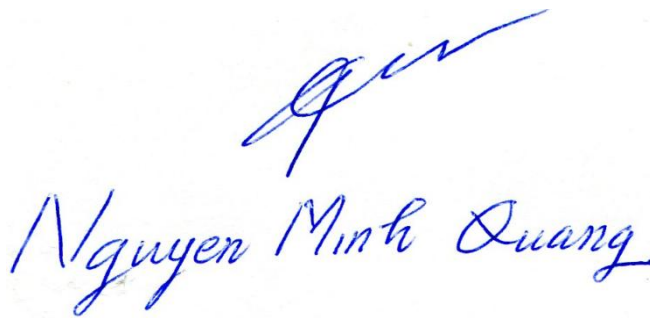 Nguyen Minh Quang